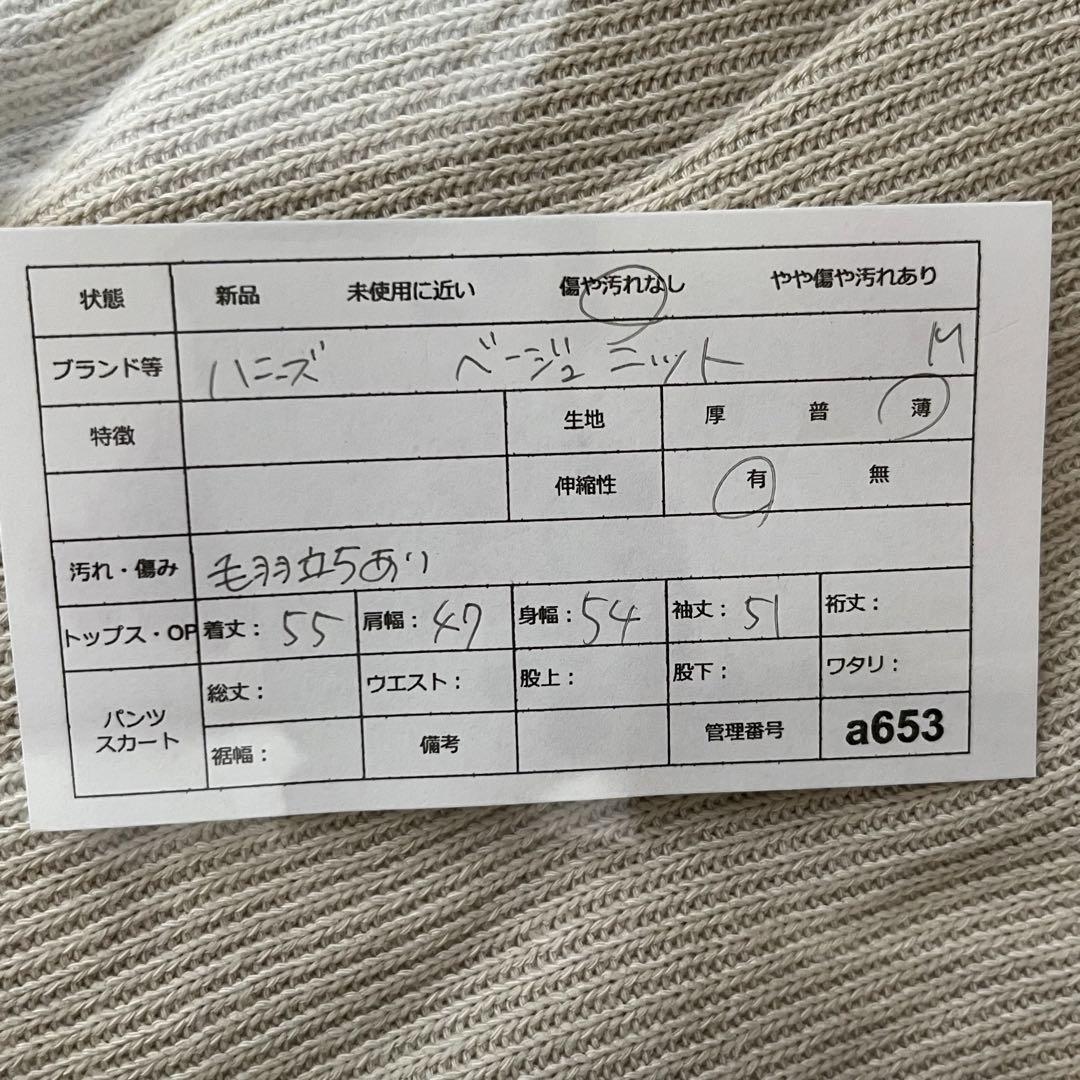 状態 新品 未使用に近い 傷や汚れなし やや傷や汚れあり
ブランド等 ハニーズ ベージュ ニット M
特徴 生地 厚 普 薄
伸縮性 有 無
汚れ・傷み 毛羽立ちあり
トップス・OP 着丈： 55 肩幅： 47 身幅： 54 袖丈： 51 裄丈：
パンツ スカート 総丈： ウエスト： 股上： 股下： ワタリ：
裾幅： 備考 管理番号 a653